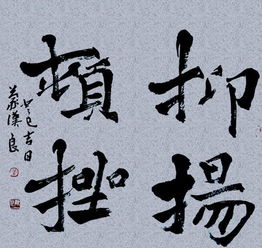 抑揚
頓挫
癸巳吉日
苏漢良